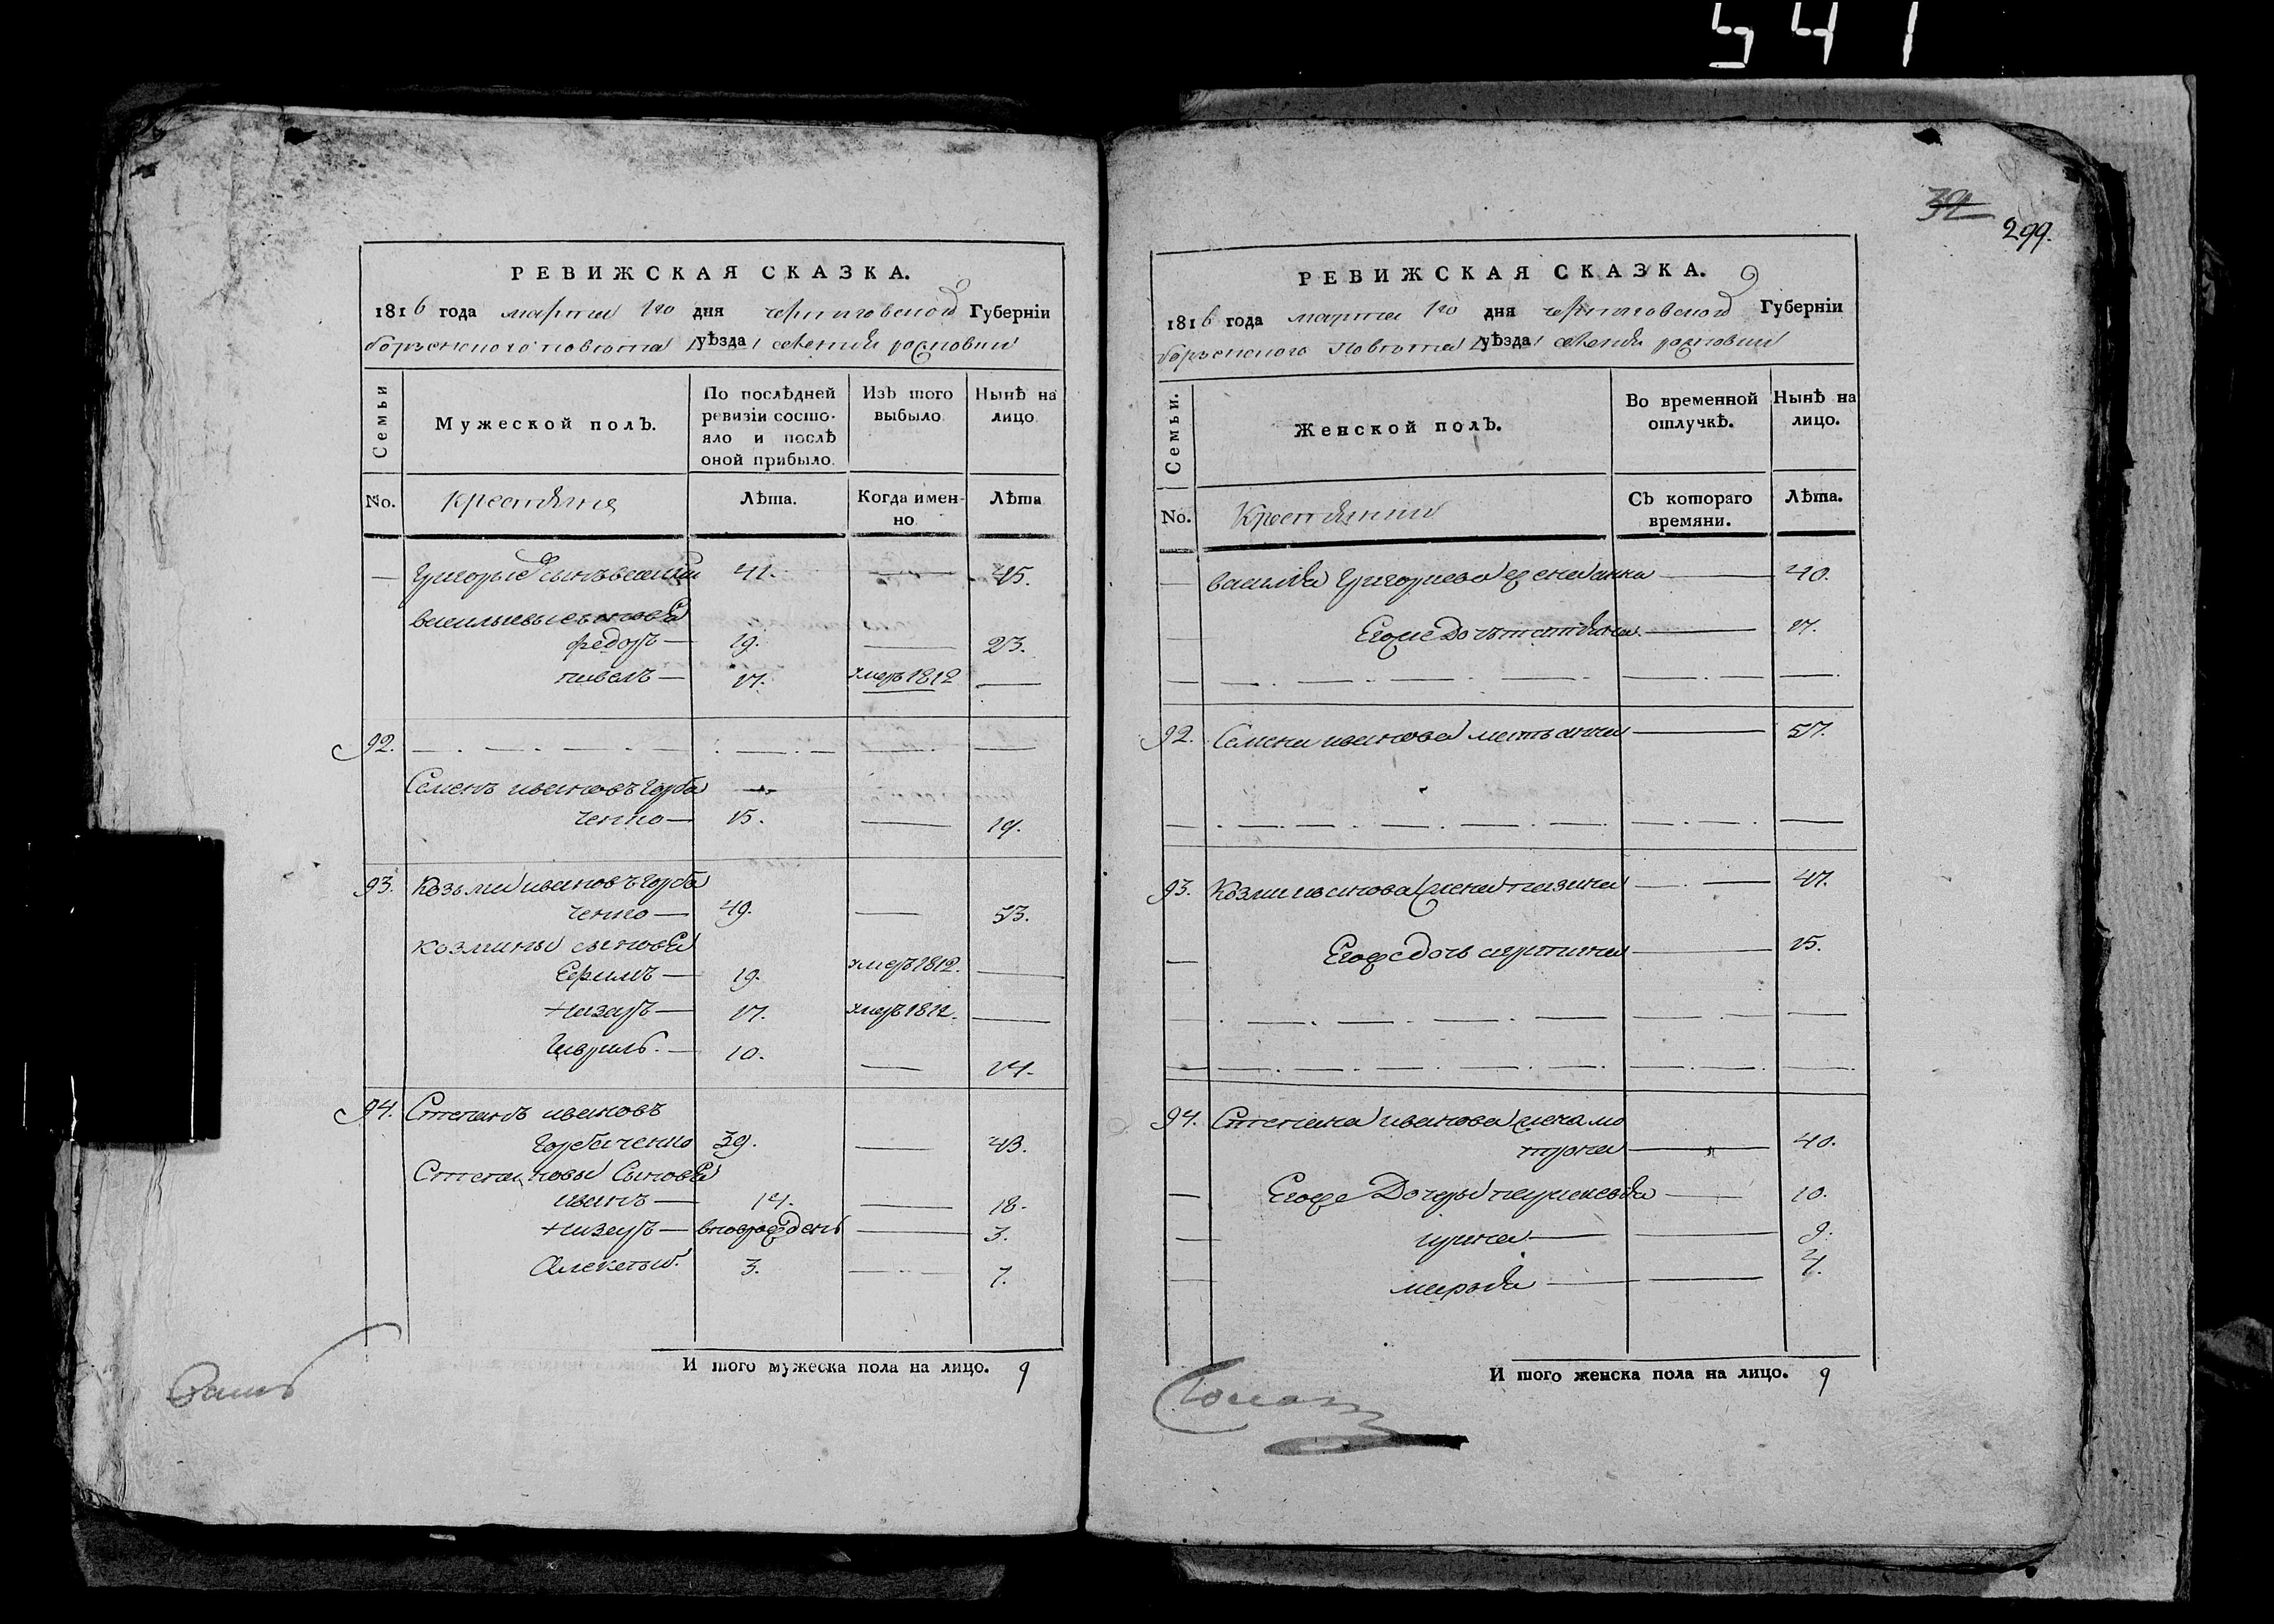 541
39
299.
РЕВИЖСКАЯ СКАЗКА.
1816 года марта 1го дня черниговской Губерніи
борзенского повета /уѣзда/ селения
Семьи
Мужеской полъ.
По послѣдней ревизіи состояло и послѣ оной прибыло.
Изъ того выбыло
Нынѣ на лицо
No.
крестьяне
Лѣта.
Когда именно
Лѣта
— Григорьев сынъ василий 41. — 45.
васильевы сыновья
федоръ — 19. — 23.
павелъ — 17. умеръ 1812 —
92.
Семенъ ивановъ Горба
ченко — 15. — 19.
93. Козьма ивановъ Горба
ченко — 49. — 53.
козмины сыновья
Ефимъ — 19. умеръ 1812. —
назаръ — 17. умеръ 1812. —
Гаврило. — 10. — 14.
94. Степанъ ивановъ
Горбаченко 39. — 43.
Степановы Сыновья
иванъ — 14. — 18.
назаръ — вновророжденъ — 3.
Алексей. 3. — 7.
И того мужеска пола на лицо. 9
РЕВИЖСКАЯ СКАЗКА.
1816 года марта 1го дня черниговской Губерніи
борзенского повета /уѣзда/ селения
Семьи.
Женской полъ.
Во временной отлучкѣ.
Нынѣ на лицо.
No.
Крестьянки
Съ котораго времяни.
Лѣта.
— василья Григориева жена анна — 40.
— Егоже дочь татьяна — 17.
92. Семена иванова мать анна — 57.
93. Козми иванова жена — 47.
— Егоже дочь — 15.
94. Степана иванова жена мо
трона — 40.
— Егоже Дочери парасковья — 10.
— ирина — 9.
— марья — 4.
И того женска пола на лицо. 9